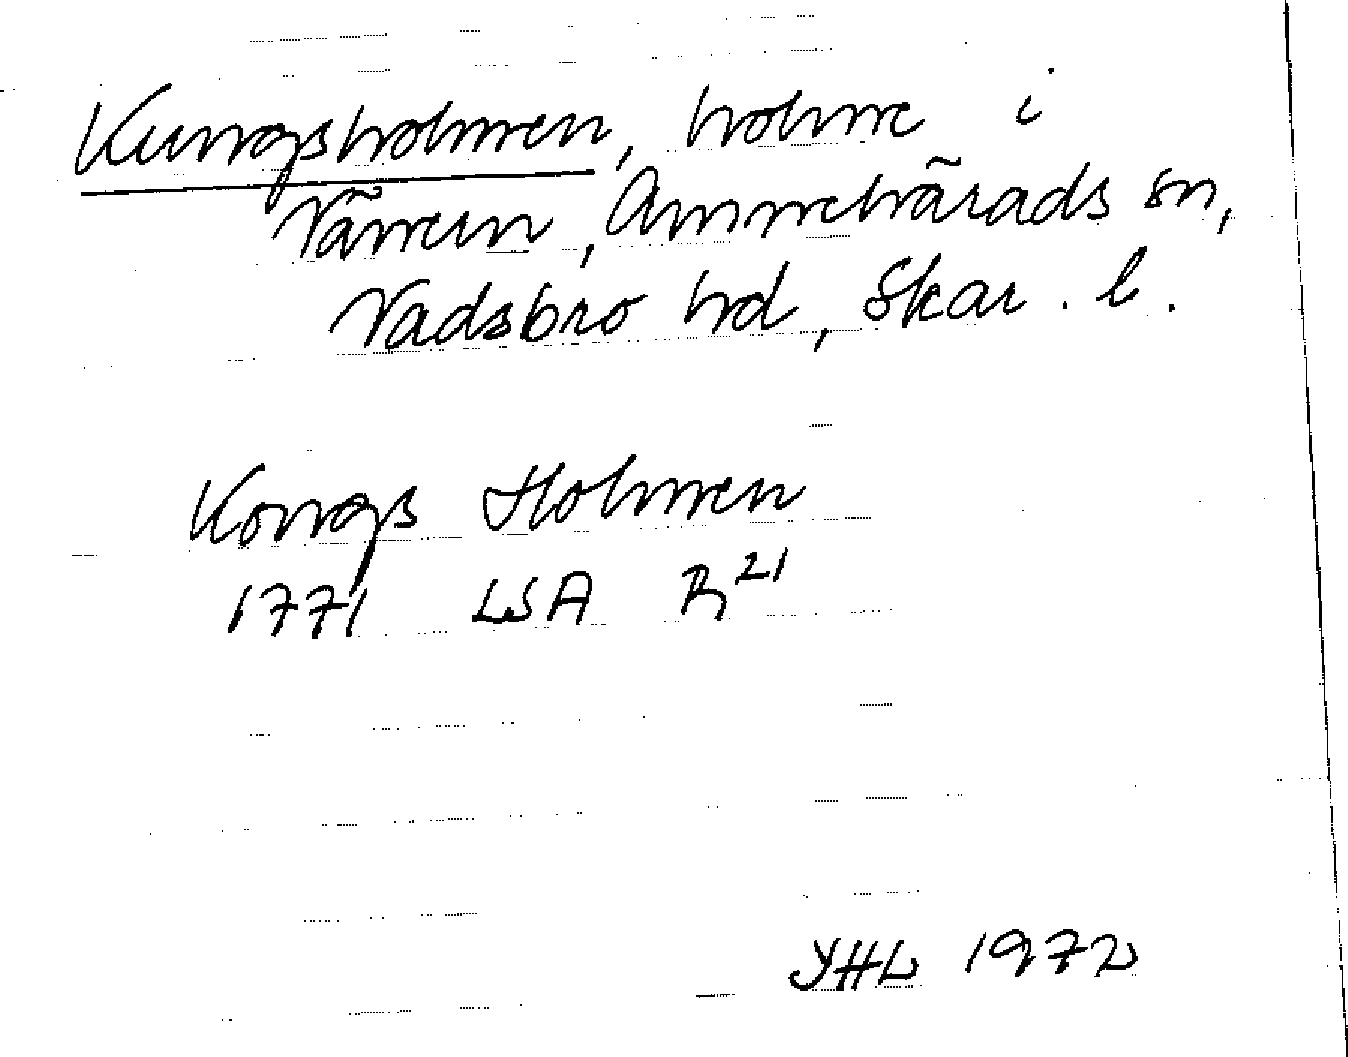 Kungsholmen, holme i
Vänern, Amnehärads sn,
Vadsbro hd, Skar. l.
Kongs Holmen
1771 LSA R21
YHL 1972